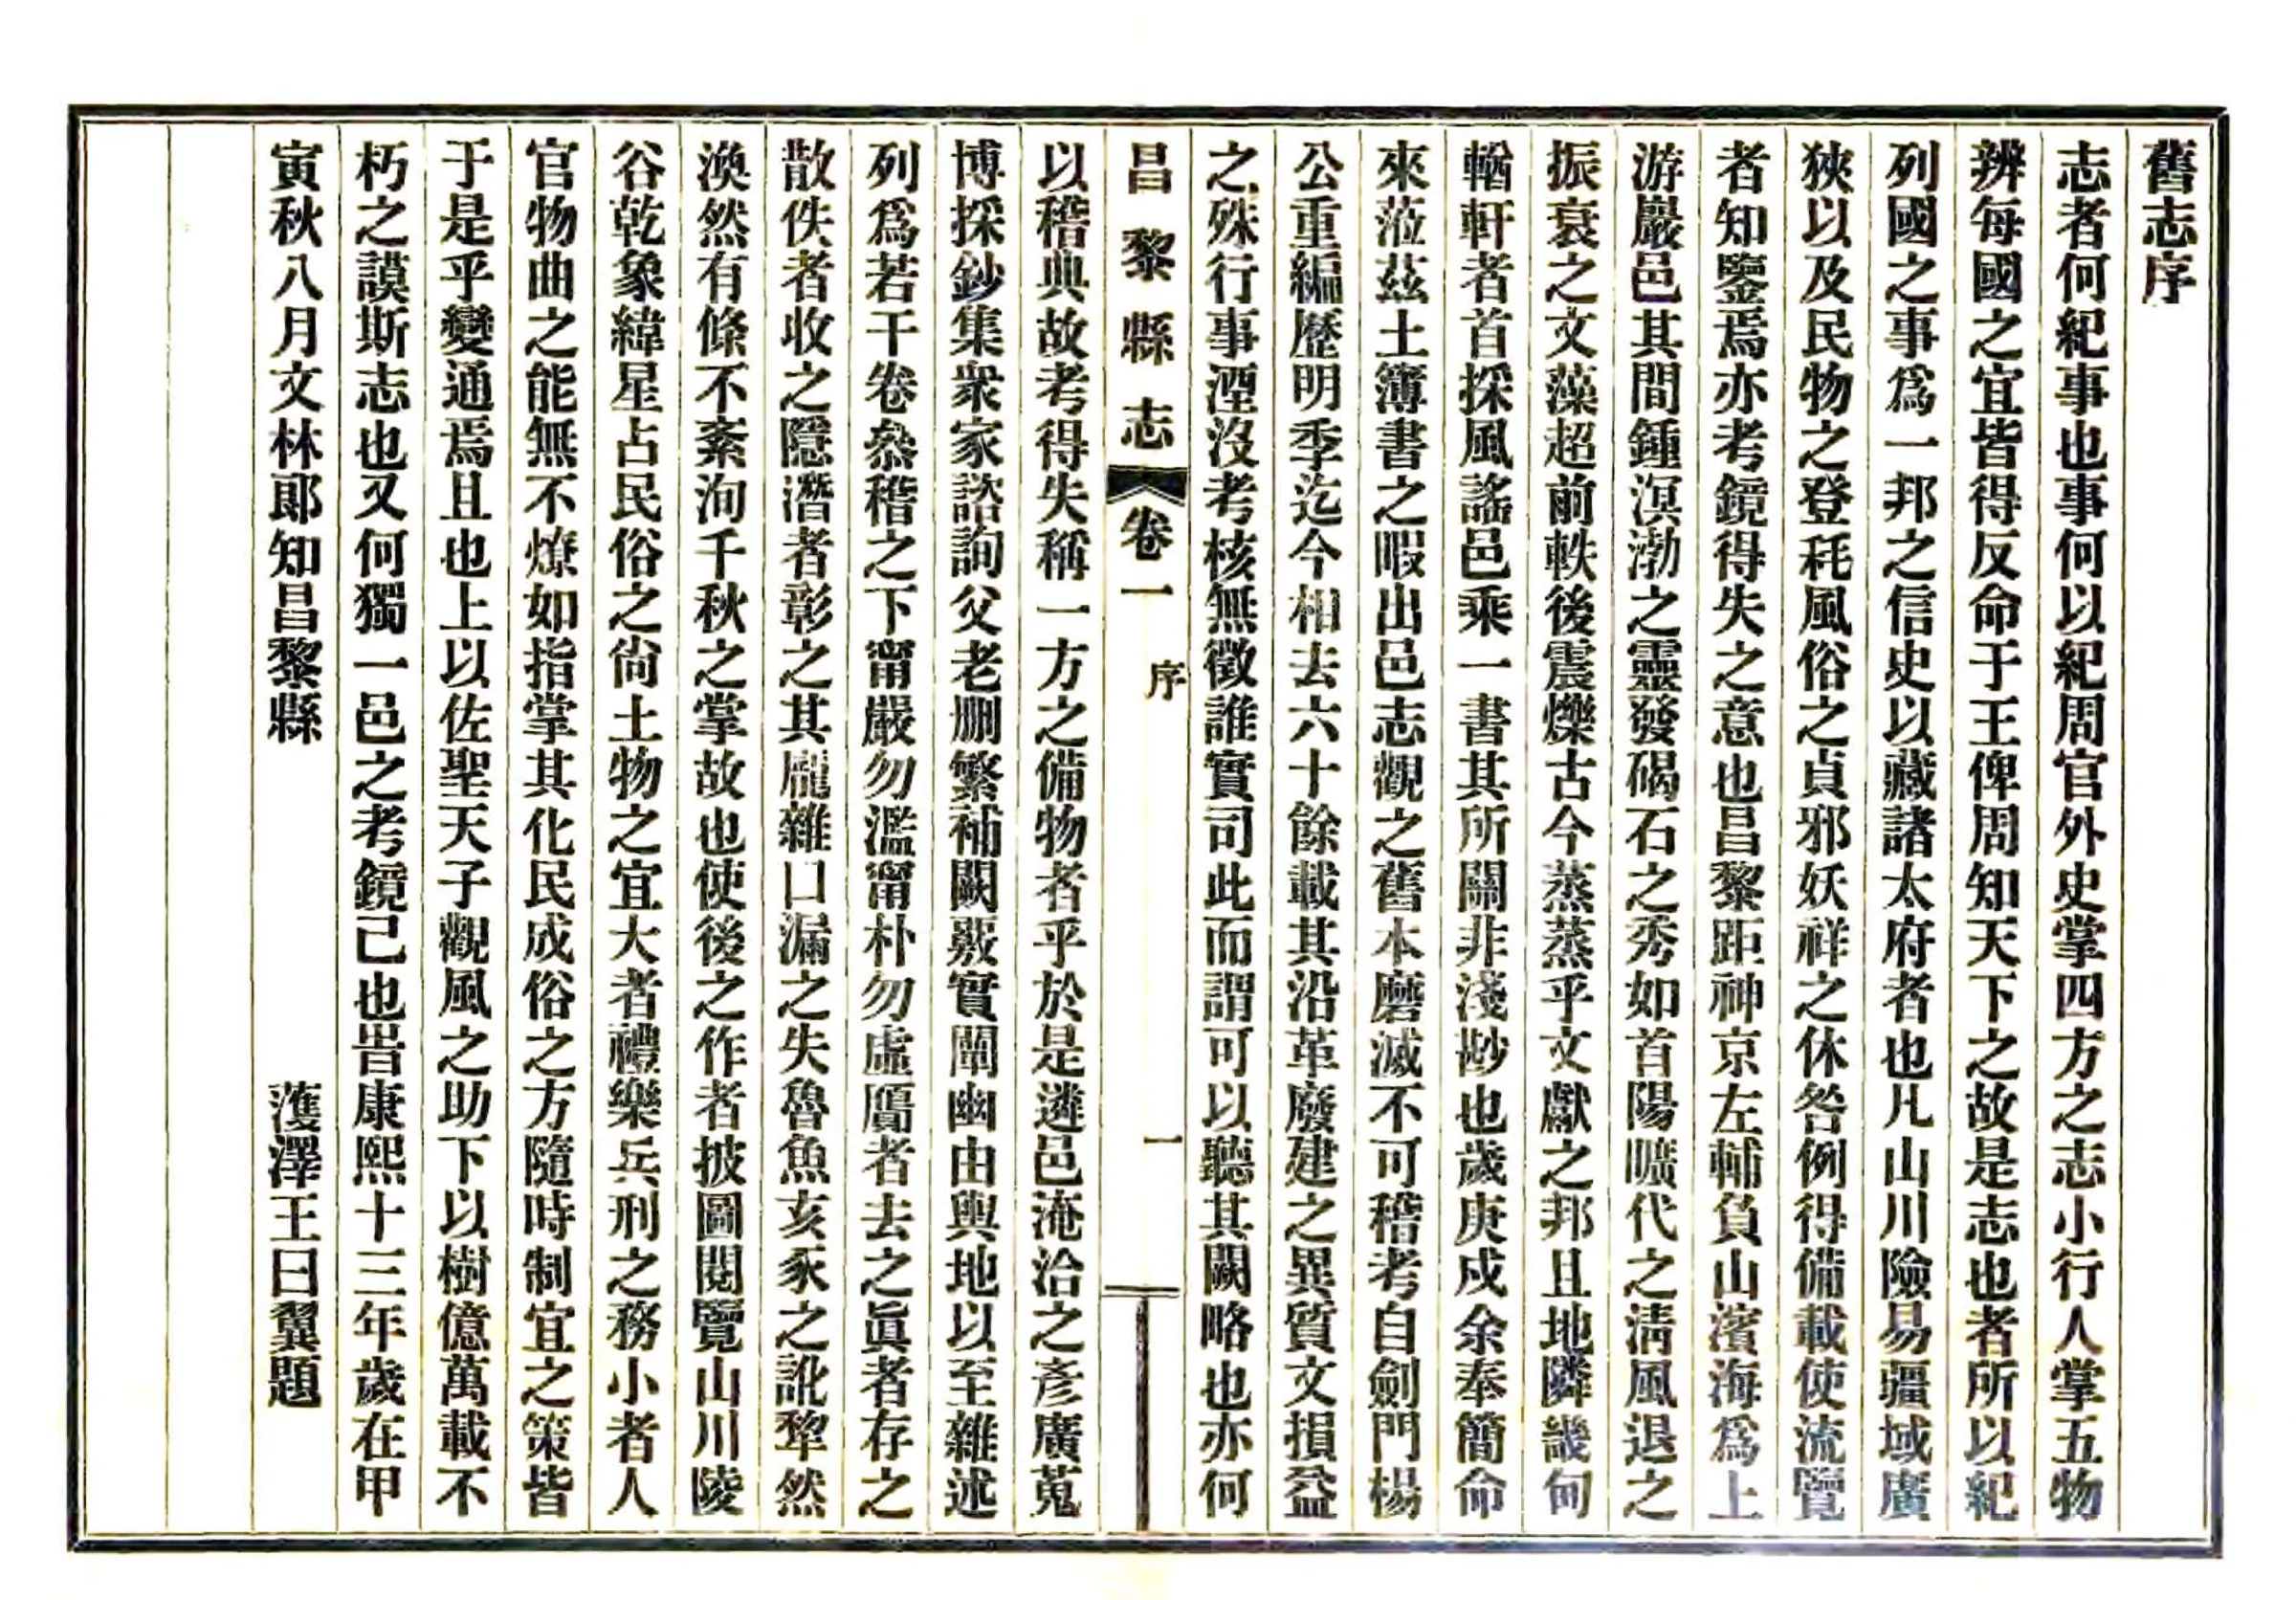 舊志序
志者何紀事也事何以紀周官外史掌四方之志小行人掌五物
辨每國之宜皆得反命于王俾周知天下之故是志也者所以紀
列國之事為一邦之信史以藏諸太府者也凡山川險易疆域廣
狹以及民物之登耗風俗之貞邪妖祥之休咎例得備載使流覽
者知鑒焉亦考鏡得失之意也昌黎距神京左輔負山濱海爲上
游巖邑其間鍾溟渤之靈發碣石之秀如首陽曠代之淸風退之
振衰之文藻超前軼後震爍古今蒸蒸乎文獻之邦且地隣畿甸
輶軒者首採風謠邑乘一書其所關非淺尠也歲庚戍余奉簡命
來蒞茲土簿書之暇出邑志觀之舊本磨滅不可稽考自劍門楊
公重編歷明季迄今相去六十餘載其沿革廢建之異質文損益
之殊行事湮沒考核無徵誰實司此而謂可以聽其闕略也亦何
昌黎縣志 卷一 序 一
以稽典故考得失稱一方之備物者乎於是遴邑淹洽之彥廣蒐
博採鈔集衆家諮詢父老刪繁補闕覈實闡幽由輿地以至雜述
列爲若干卷叅稽之下甯嚴勿濫甯朴勿虛贗者去之眞者存之
散佚者收之隱潛者彰之其龎雜口漏之失魯魚亥豕之訛犂然
渙然有條不紊洵千秋之掌故也使後之作者披圖閱覽山川陵
谷乾象緯星占民俗之尙土物之宜大者禮樂兵刑之務小者人
官物曲之能無不燎如指掌其化民成俗之方隨時制宜之策皆
于是乎變通焉且也上以佐聖天子觀風之助下以樹億萬載不
朽之謨斯志也又何獨一邑之考鏡己也旹康熙十三年歲在甲
寅秋八月文林郎知昌黎縣 濩澤王曰翼題